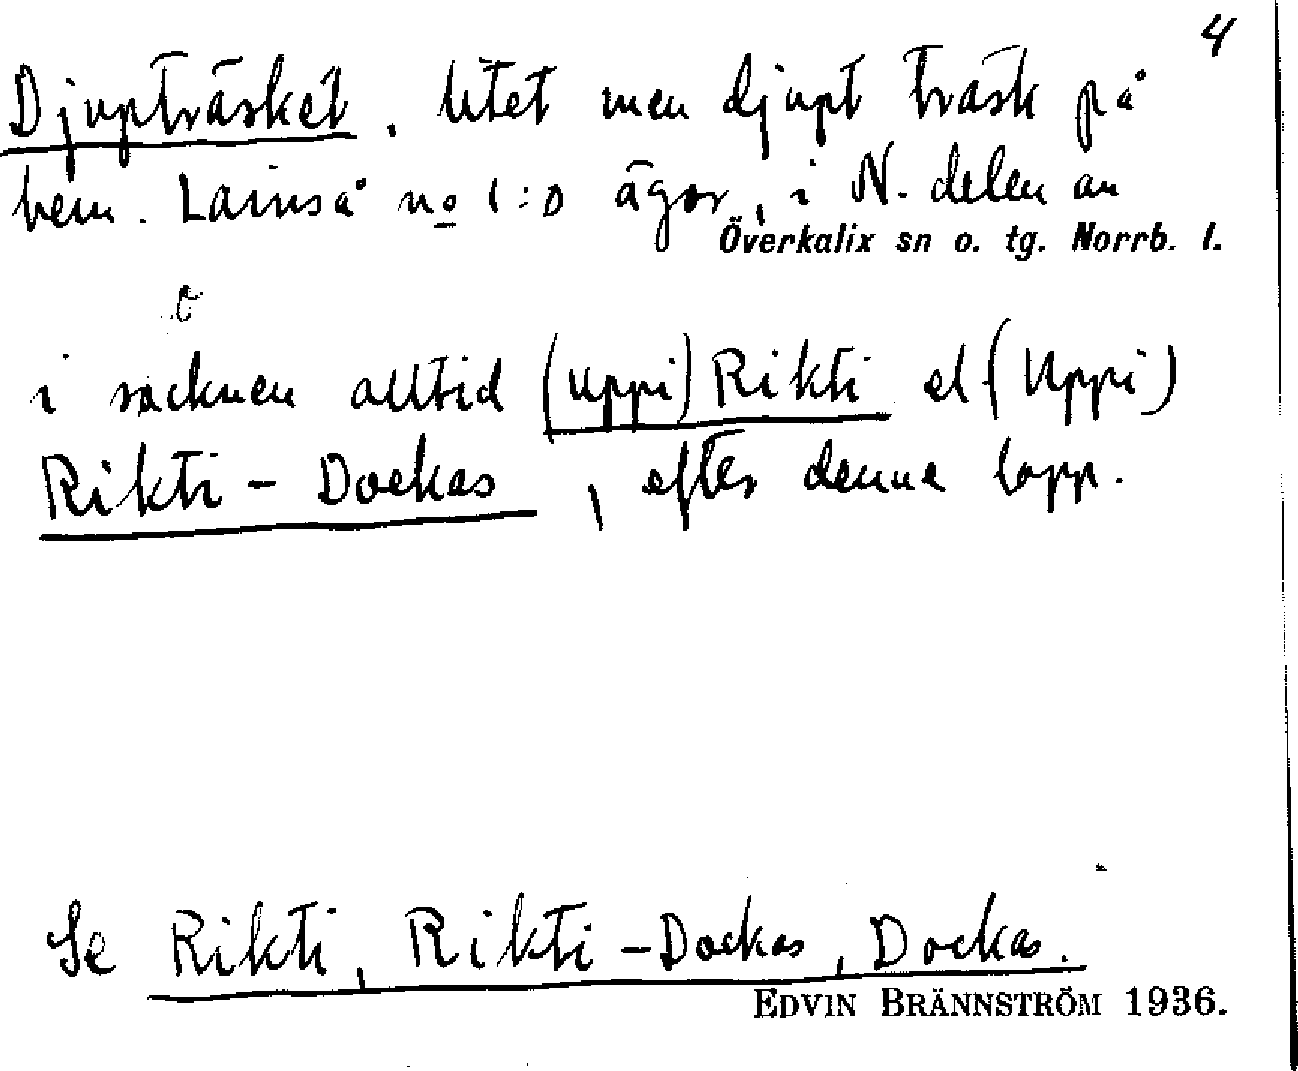 4
Djupträsket, litet men djupt träsk på
hem. Lainså no 1:0 ägor, i N. delen av
Överkalix sn o. tg. Norrb. l.
i socknen alltid (uppi) Rikti el. (Uppi)
Rikti - Dockas, efter denne lapp.
Se Rikti, Rikti - Dockas, Dockas.
EDVIN BRÄNNSTRÖM 1936.